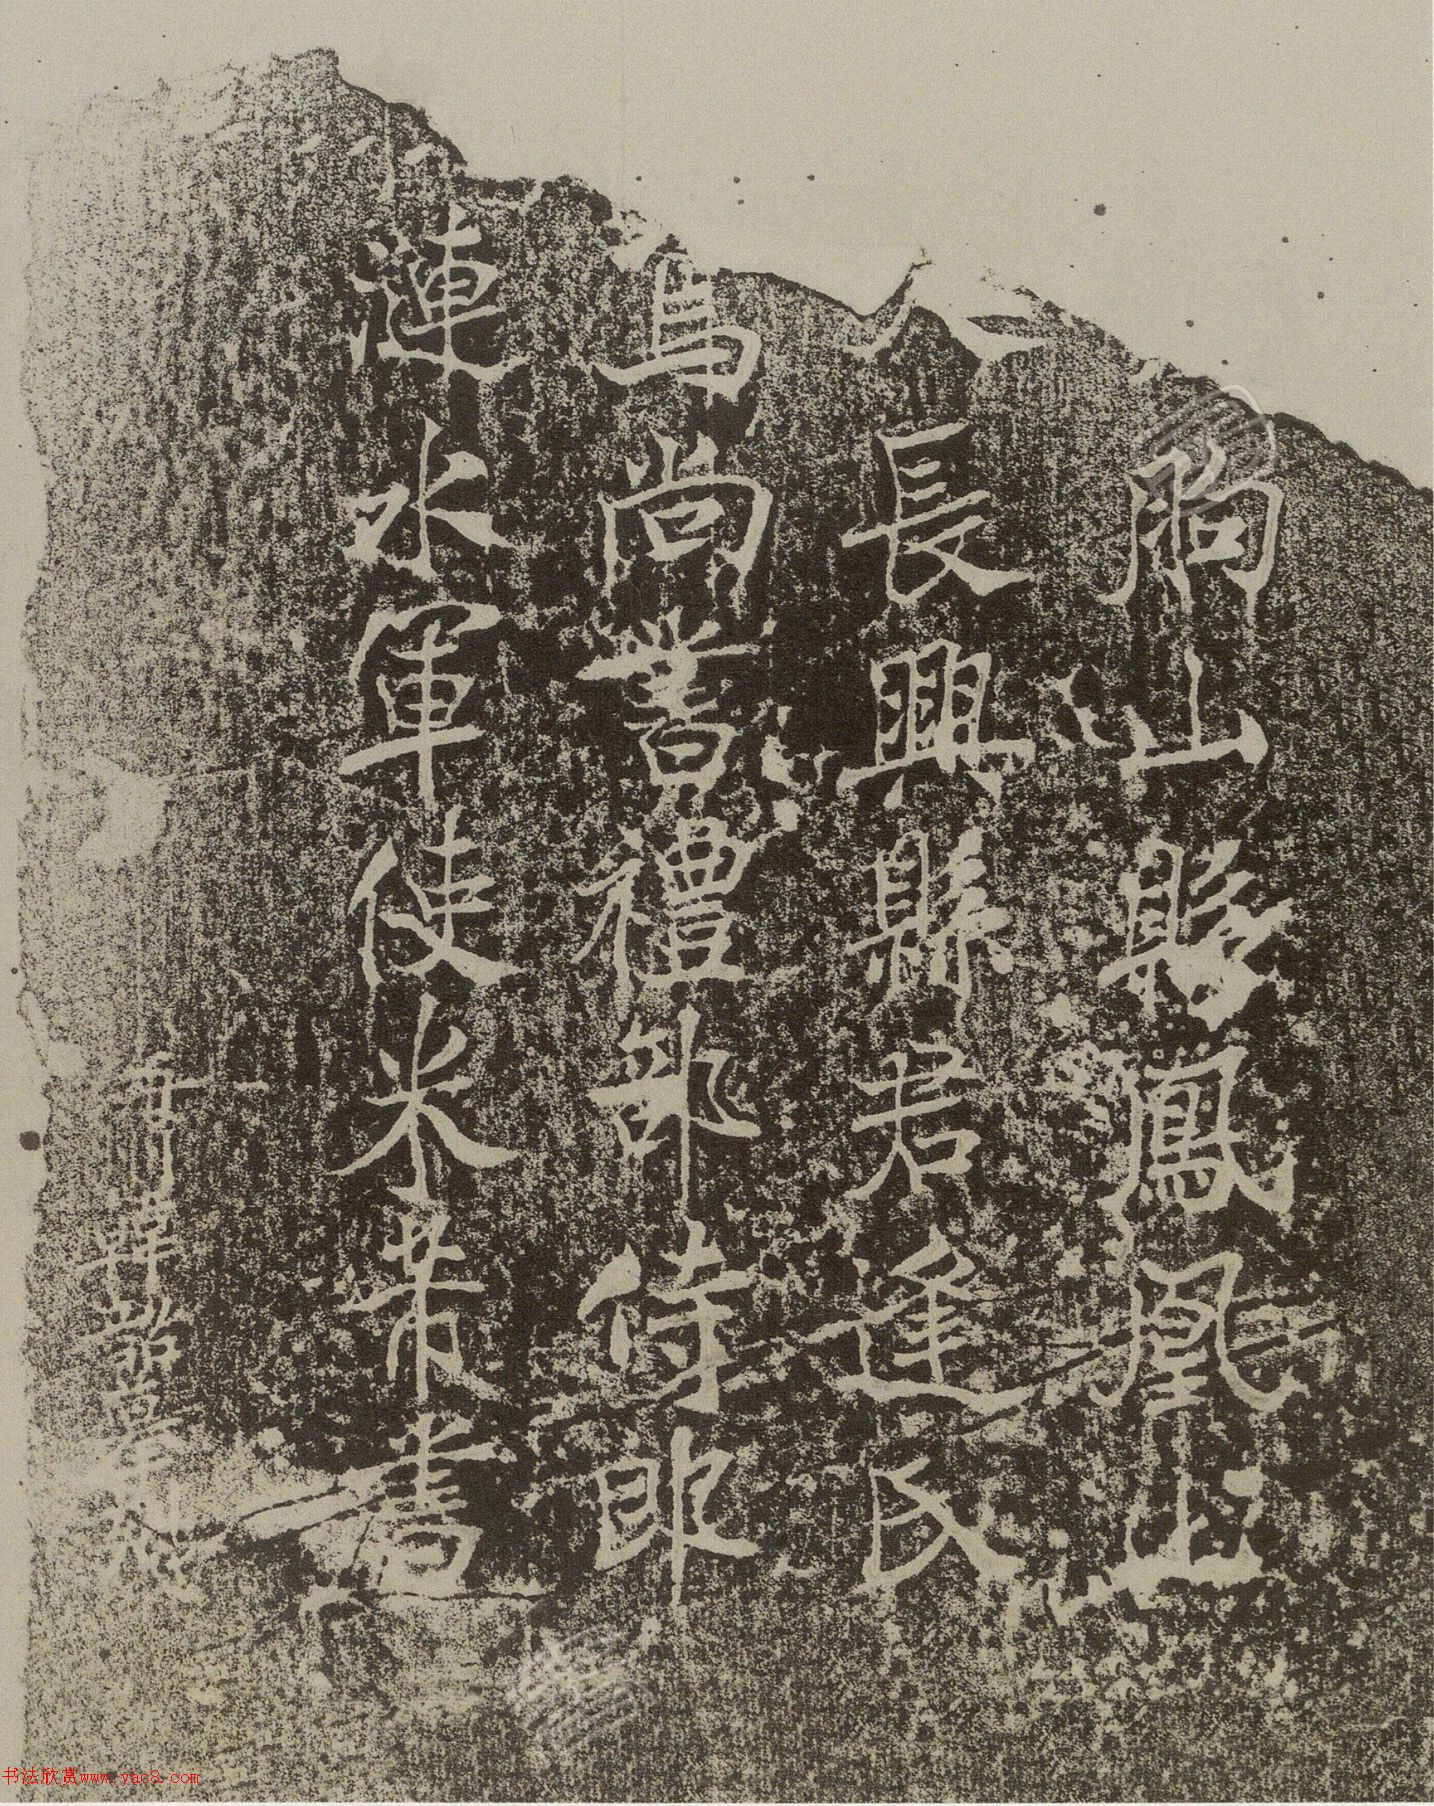 朐山縣鳳凰山
人長興縣君逢氏
為尚書禮部侍郎
漣水軍使米芾書
書法欣賞www.yac8.com